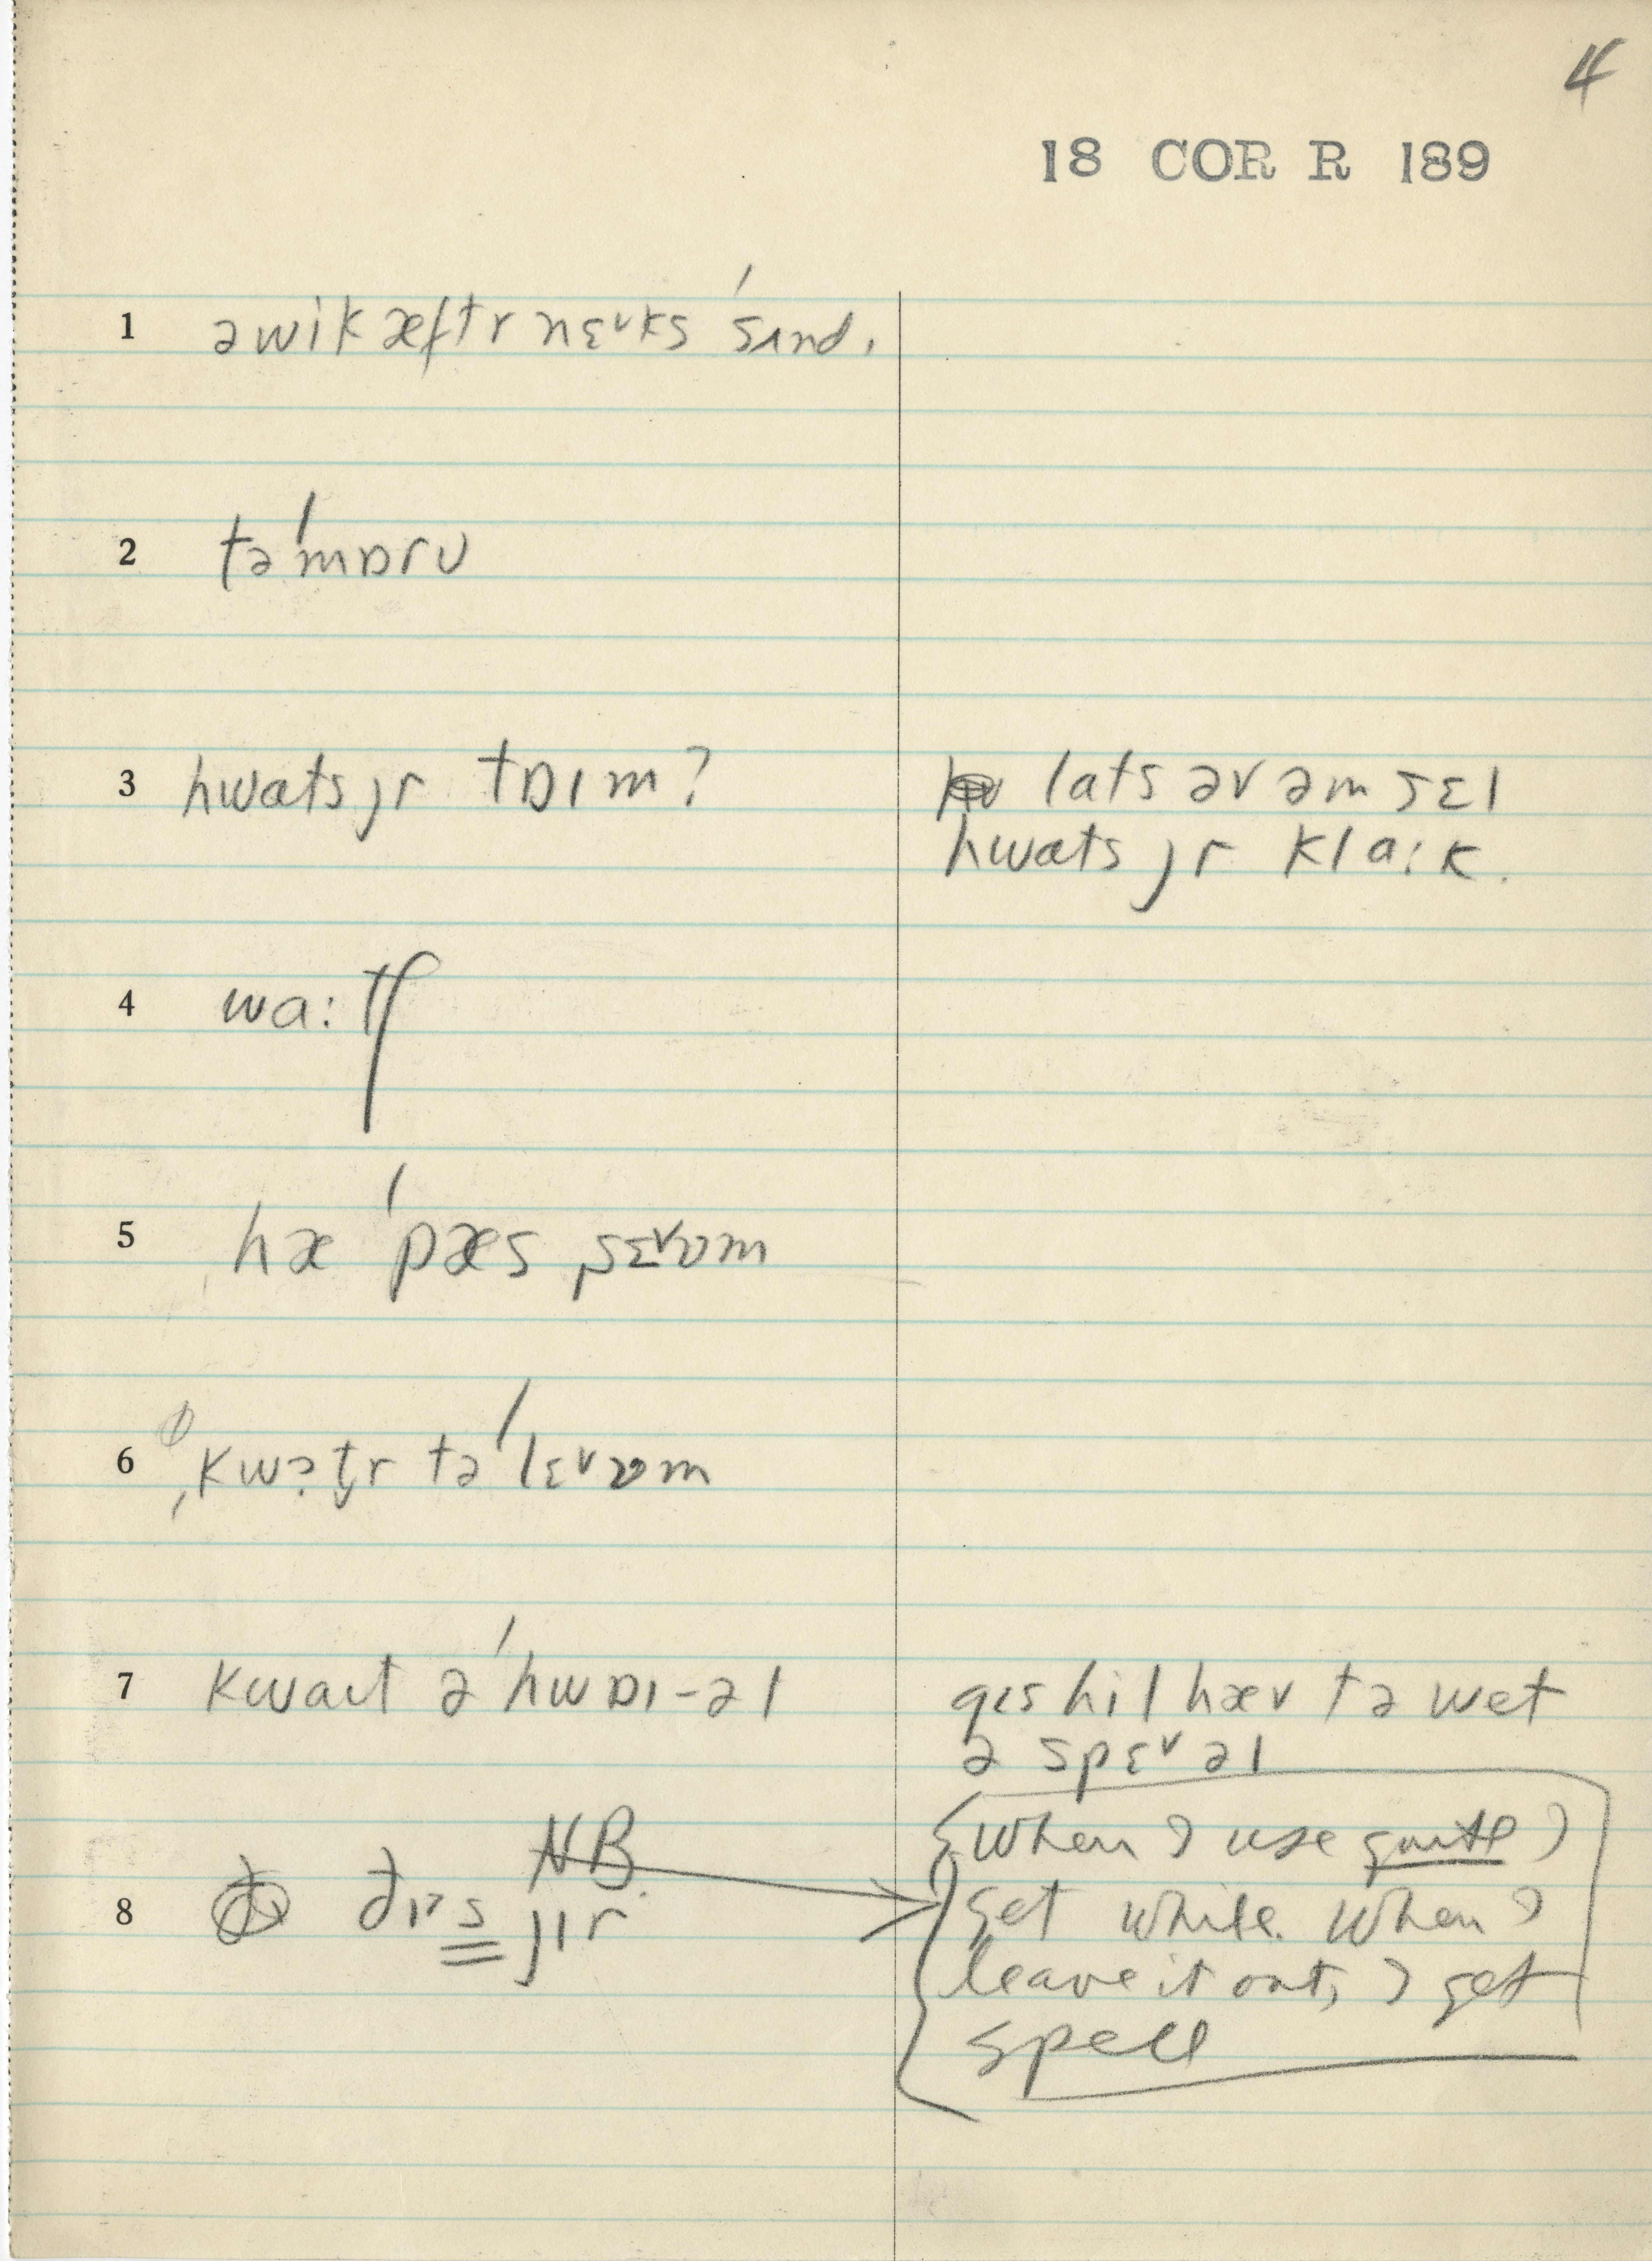 4
18 COR R 189
1 əwik æftr nɛvks 'sʌnd.
2 tə'mɒrʊ
3 hwats jr tɒɪm?
lats əv əm sɛl
hwats jr klɑ:k.
4 wɑ:tʃ
5 hæ 'pæs sɛvʊm
6 kwɔt̬r tə 'lɛvʊm
7 kwaɪt ə 'hwɒɪ-əl
gɪs hil hæv tə wet
ə spɛvəl
NB.
{When I use quite I
get while. When I
leave it out, I get
spell
8 ðɪs jɪr